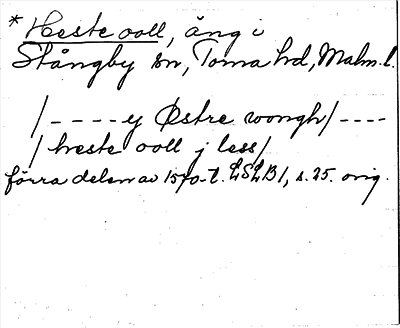 * Heste voll, äng i
Stångby sn, Torna hd, Malm. l.
/ - - - - y Østre wongh / - - - -
/ heste voll j less /
förra delen av 1570-t. LSLB 1, s. 25. orig.